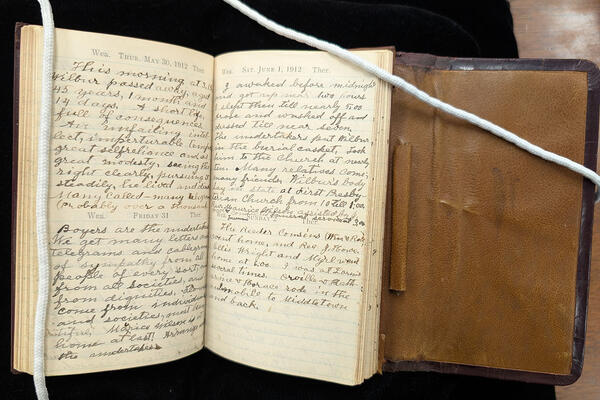 Wea. THUR. MAY 30, 1912 Ther.
This morning at 3:15
Wilbur passed away, aged
45 years, 1 month, and
14 days. A short life,
full of consequences.
An unfailing intel-
lect, imperturbable temper,
great self-reliance and as
great modesty, seeing the
right clearly, pursuing it
steadily, he lived and died.
Many called—many
(Probably over a thousand
Wea. FRIDAY 31 Ther.
Boyers are the undertakers
We get many letters
telegrams and cablegrams
of sympathy from
people of every sort
from all Societies, and
from dignities.
come from individuals
and societies, and
home at last! Arrange
the undertaker
Wea. SAT. JUNE 1, 1912 Ther.
I awaked before midnight
and got up near two hours
slept then till nearly 5:00
rose and washed off and
dressed till near seven.
The undertakers put Wilbur
in the burial casket, took
him to the Church at nearly
ten. Many relatives came;
many friends. Wilbur's body
lay in state at First Presby-
terian Church from 10 till 1:00.
Maurice Wilson assisted by
funeral services at 3:00
The Reeder Cousins
went home, and Rev. J. Howe
Ellis Wright and
home at 6:00. I was at Lorin's
several times. Orville & Kath-
arine & Horace rode in the
automobile to Middletown
and back.